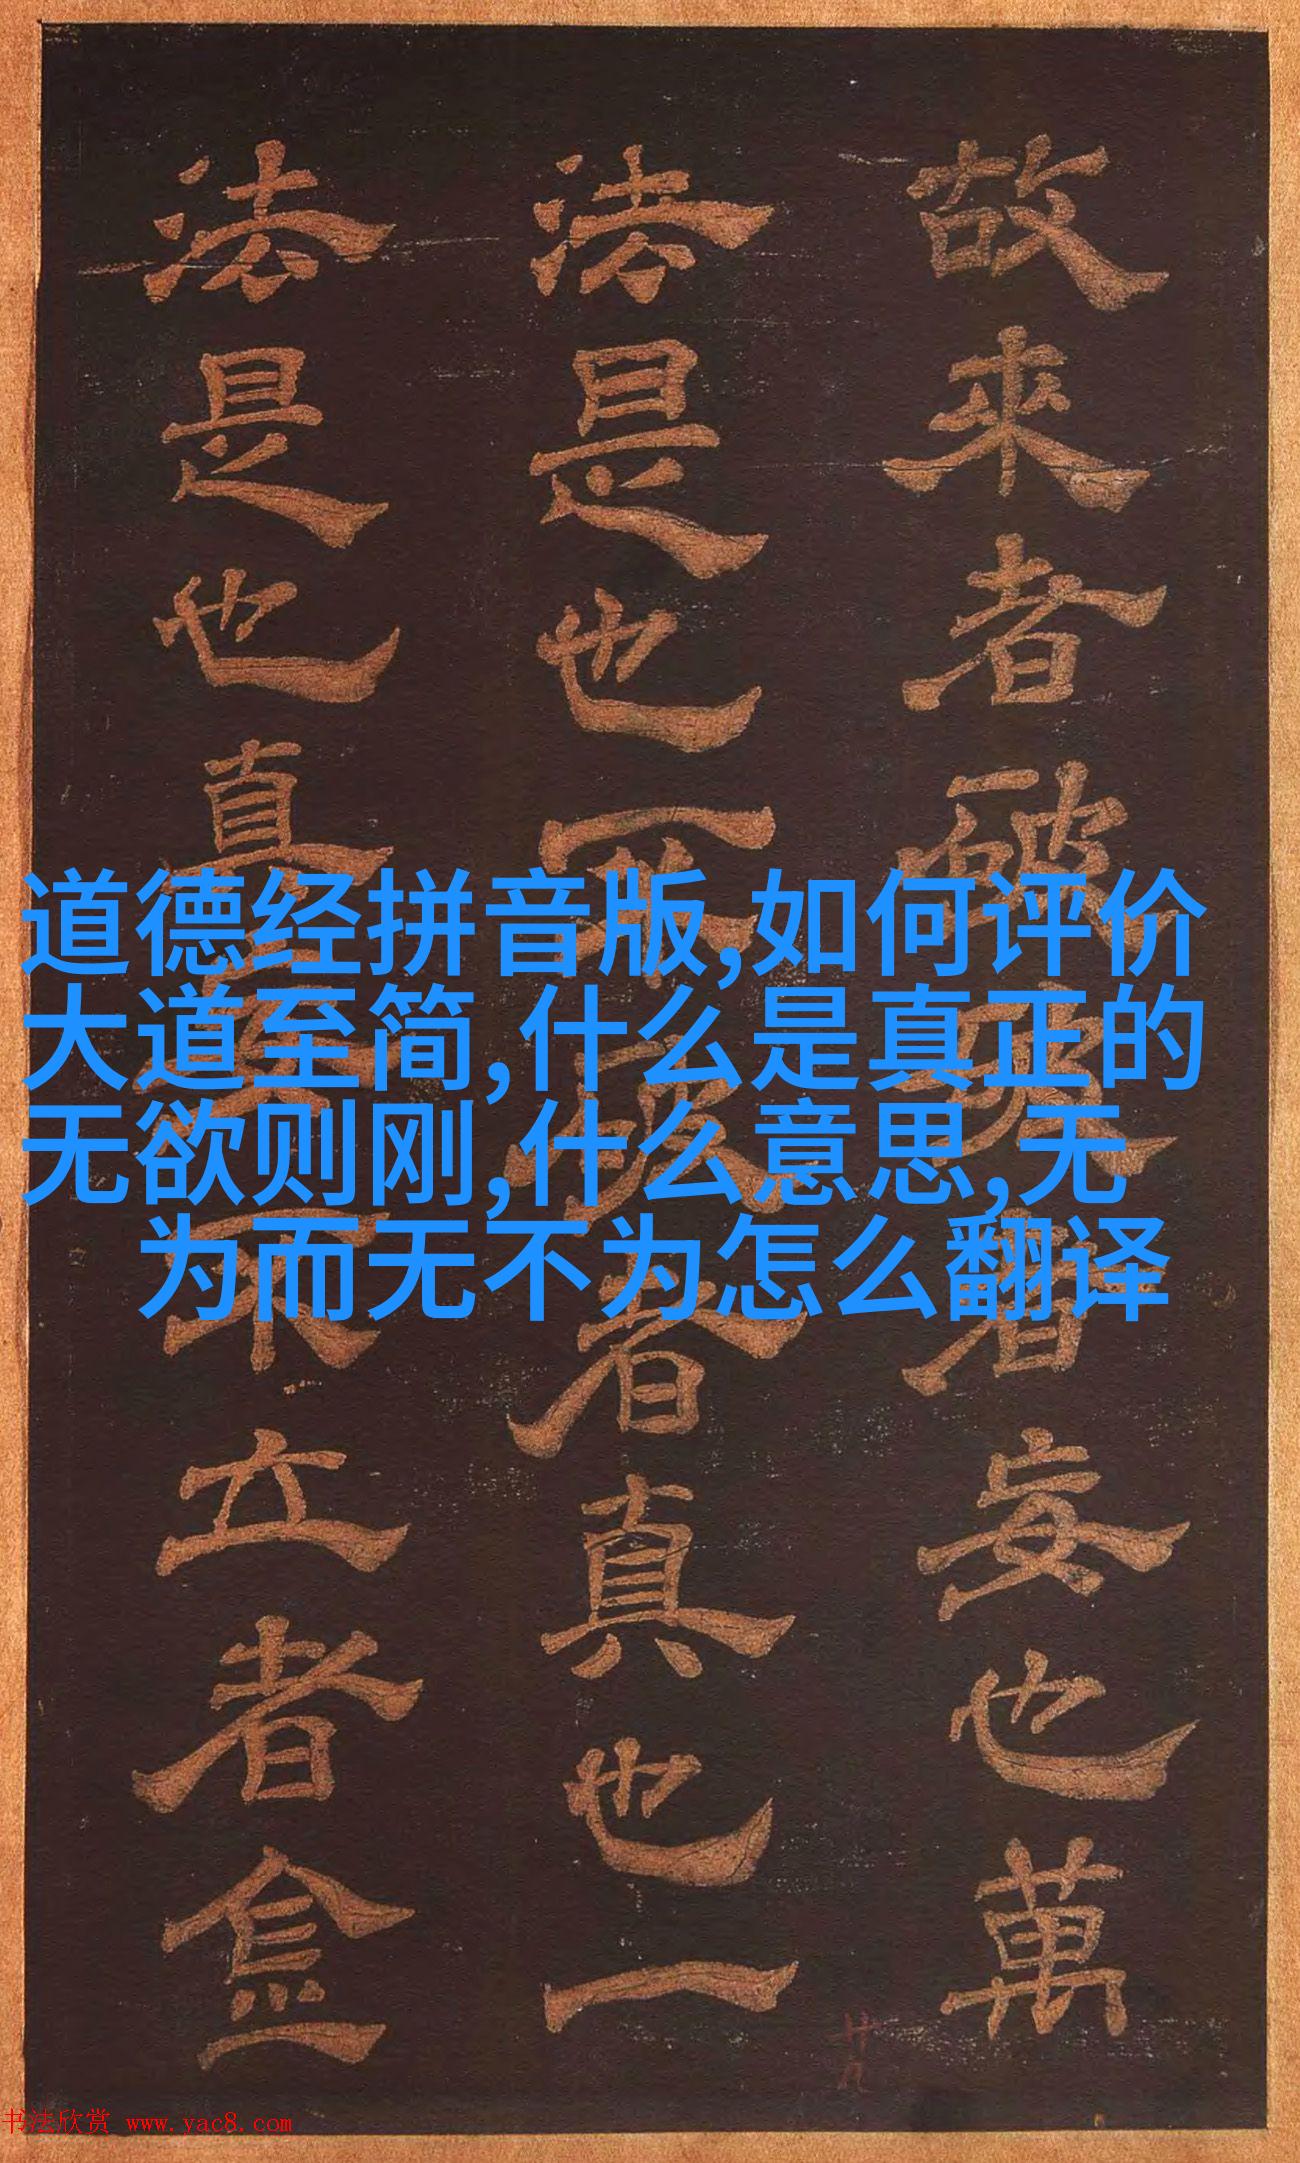 道德经拼音版,如何评价
大道至简,什么是真正的
无欲则刚,什么意思,无
为而无不为怎么翻译
故來者者妄也萬
法是也破者真也一
法是也真妄不立者
书法欣赏 www.yac8.com